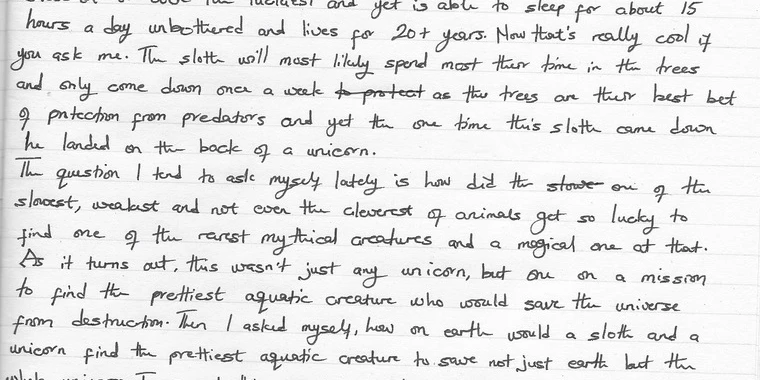 and yet is able to sleep for about 15
hours a day unbothered and lives for 20+ years. Now that's really cool if
you ask me. The sloth will most likely spend most their time in the trees
and only come down once a week to protect as the trees are their best bet
of protection from predators and yet the one time this sloth came down
he landed on the back of a unicorn.
The question I tend to ask myself lately is how did the slowe one of the
slowest, weakest and not even the cleverest of animals get so lucky to
find one of the rarest mythical creatures and a magical one at that.
As it turns out, this wasn't just any unicorn, but one on a mission
to find the prettiest aquatic creature who would save the universe
from destruction. Then I asked myself, how on earth would a sloth and a
unicorn find the prettiest aquatic creature to save not just earth but the